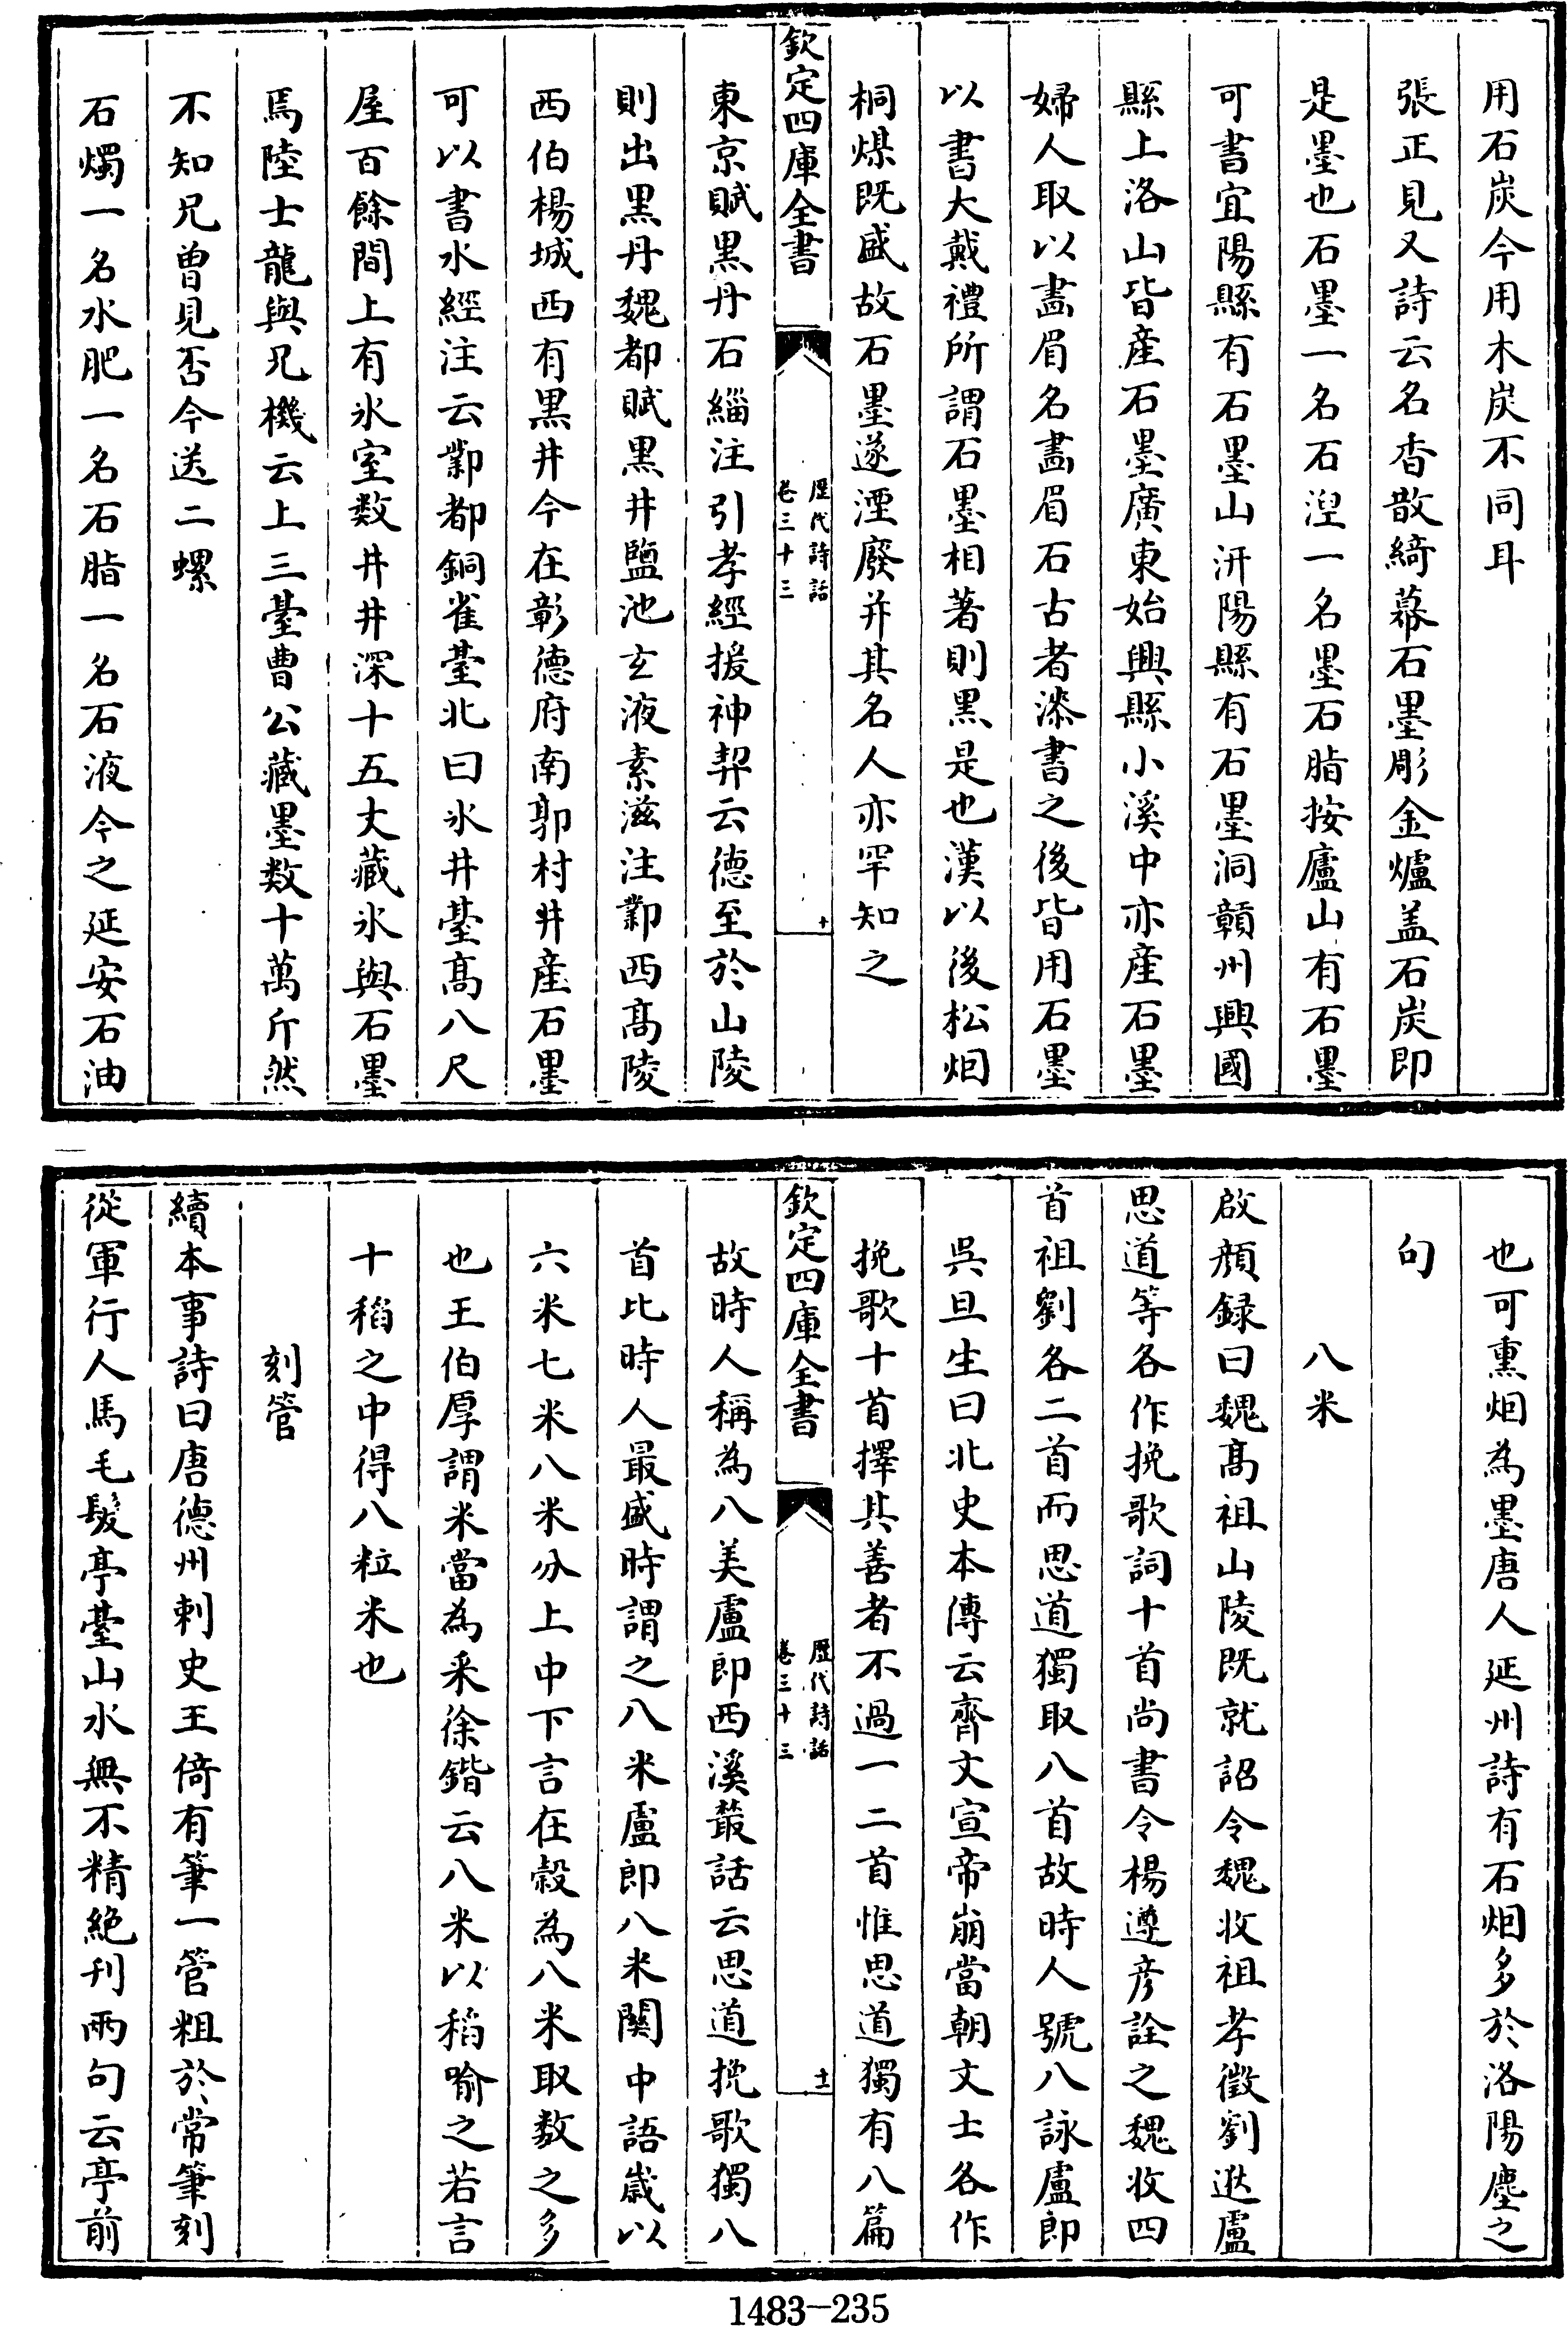 用石炭今用木炭不同耳
張正見又詩云名香散綺幕石墨彫金爐盖石炭即
是墨也石墨一名石湼一名墨石脂按廬山有石墨
可書宜陽縣有石墨山汧陽縣有石墨洞贑州興國
縣上洛山皆産石墨廣東始興縣小溪中亦産石墨
婦人取以畵眉名畵眉石古者漆書之後皆用石墨
以書大戴禮所謂石墨相著則黒是也漢以後松烟
桐煤既盛故石墨遂湮廢并其名人亦罕知之
欽定四庫全書
歴代詩話
卷三十三
十
東京賦黒丹石緇注引孝經援神契云德至於山陵
則出黒丹魏都賦黒井鹽池玄液素滋注鄴西髙陵
西伯楊城西有黒井今在彰德府南郭村井産石墨
可以書水經注云鄴都銅雀臺北曰氷井臺髙八尺
屋百餘間上有氷室数井井深十五丈藏氷與石墨
焉陸士龍與兄機云上三臺曹公藏墨数十萬斤然
不知兄曽見否今送二螺
石燭一名水肥一名石脂一名石液今之延安石油
也可熏烟為墨唐人延州詩有石烟多於洛陽塵之
句
八米
啟顔録曰魏髙祖山陵既就詔令魏收祖孝徵劉逖盧
思道等各作挽歌詞十首尚書令楊遵彦詮之魏收四
首祖劉各二首而思道獨取八首故時人號八詠盧郎
吳旦生曰北史本傳云齊文宣帝崩當朝文士各作
挽歌十首擇其善者不過一二首惟思道獨有八篇
欽定四庫全書
歴代詩話
卷三十三
十一
故時人稱為八美盧郎西溪叢話云思道挽歌獨八
首比時人最盛時謂之八米盧郎八米關中語歲以
六米七米八米分上中下言在穀為八米取数之多
也王伯厚謂米當為采徐鍇云八米以稻喻之若言
十稻之中得八粒米也
刻管
續本事詩曰唐德州刺史王倚有筆一管粗於常筆刻
從軍行人馬毛髮亭臺山水無不精絶刋兩句云亭前
1483-235